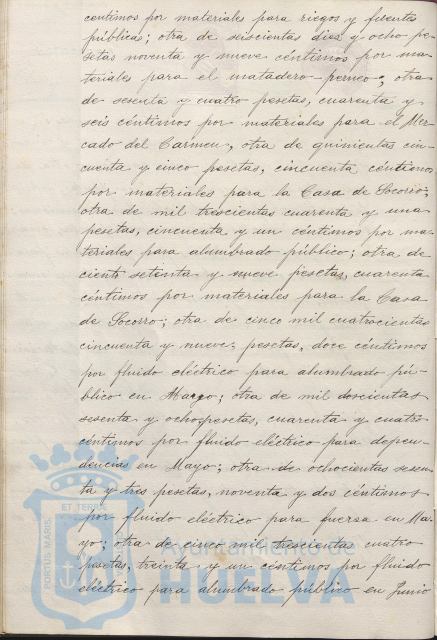 centimos por materiales para riegos y fuentes
públicas; otra de seiscientas diez y ocho pe-
setas noventa y nueve céntimos por ma-
teriales para el matadero-perneo; otra
de sesenta y cuatro pesetas, cuarenta y
seis céntimos por materiales para el Mer-
cado del Carmen, otra de quinientas cin-
cuenta y cinco pesetas, cincuenta céntimos
por materiales para la Casa de Socorro;
otra de mil trescientas cuarenta y una
pesetas, cincuenta y un céntimos por ma-
teriales para alumbrado público; otra de
ciento setenta y nueve pesetas, cuarenta
céntimos por materiales para la Casa
de Socorro; otra de cinco mil cuatrocientas
cincuenta y nueve; pesetas, doce céntimos
por fluido eléctrico para alumbrado pú-
blico en Mayo; otra de mil doscientas
sesenta y ocho pesetas, cuarenta y cuatro
céntimos por fluido eléctrico para depen-
dencias en Mayo; otra de ochocientas sesen-
ta y tres pesetas, noventa y dos céntimos
por fluido eléctrico para fuerza en Ma-
yo; otra de cinco mil trescientas cuatro
pesetas, treinta y un céntimos por fluido
eléctrico para alumbrado público en Junio
PORTUS MARIS ET TERRE
Ayuntamiento de
HUELVA